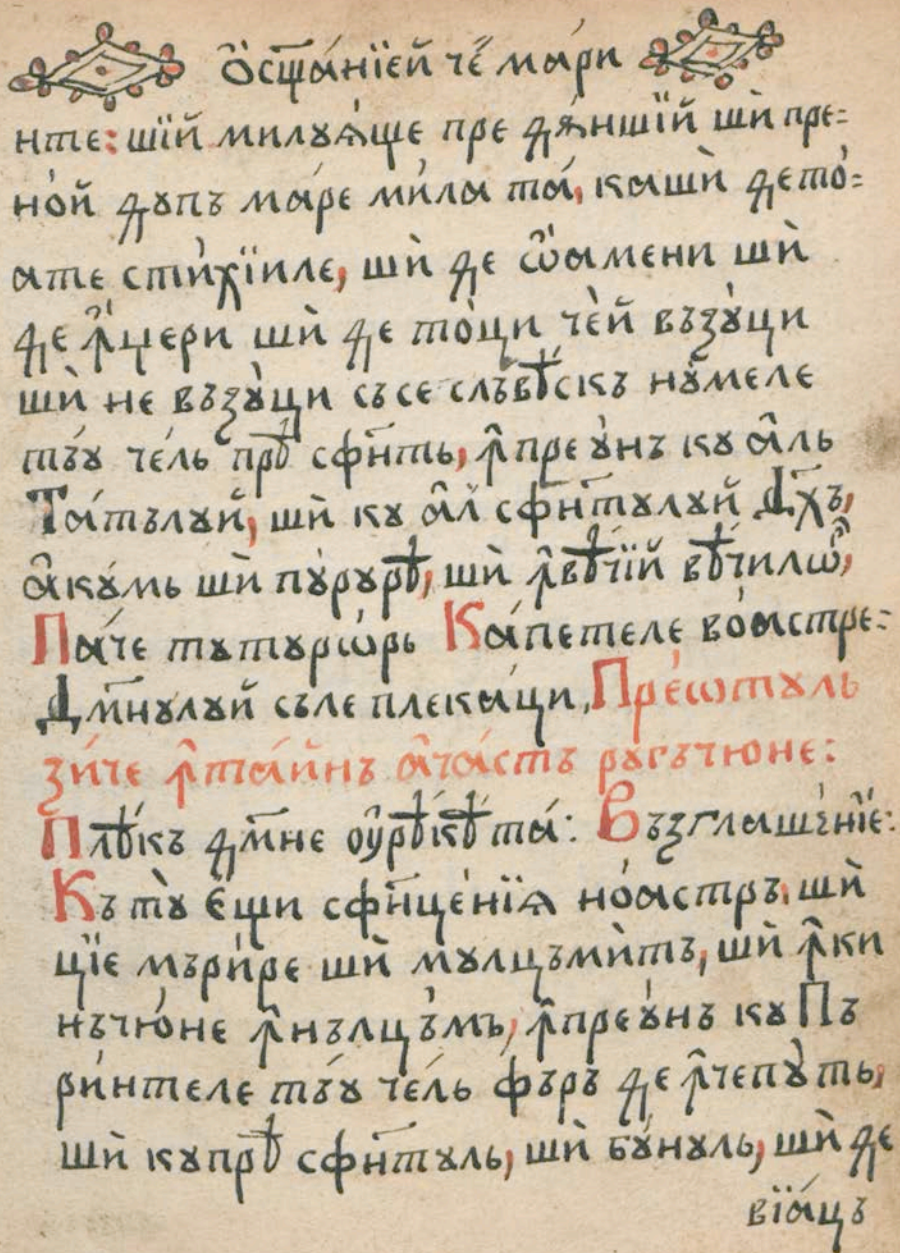 Ѻ҆сща́нїей че҆ ма́ри
нте: шїй милꙋѧ́ще пре дѧ́ншїй шѝ пре=
но́й дꙋпъ ма́ре ми́ла та́, кашѝ дето́=
ате стихі́иле, шѝ де ѡ҆́амени шѝ
де ꙟ҆́џери шѝ де то́ци че́й възꙋ́ци
шѝ не възꙋ́ци съсе слъвѣ́скъ нꙋ́меле
тъ́ꙋ че́ль прѣ́ сфн҃ть, ꙟ҆преꙋ́нъ кꙋ а҆ль
Та́тълꙋй, шѝ кꙋ а҆л сфн҃тꙋлꙋй Дх҃ъ,
а҆кꙋ́мь шѝ пꙋ́рꙋрѣ, шѝ ꙟ҆вѣ́чїй вѣ́чилѡ҆р,
Па́че тꙋтꙋрѡ́рь Ка́петеле во́астре=
Дм҃нꙋлꙋй съле плека́ци, Прео́ѡтꙋль
зи́че ꙟ҆та́йнъ а҆ча́стъ рꙋгъчюне:
Плѣ́къ дм҃не оу҆рѣ́кѣ та́: Възглаше́нїе:
Къ тꙋ̀ є҆щи сфн҃це́нїѧ но́астръ, шѝ
цїе мъри́ре шѝ мꙋлцъми́тъ, шѝ ꙟ҆ки
нъчю́не ꙟ҆нълцъ́мъ, ꙟ҆преꙋ́нъ кꙋ Пъ
ри́нтеле тъ́ꙋ че́ль фъръ де ꙟ҆чепꙋ́ть,
шѝ кꙋпрѣ́ сфн҃тꙋль, шѝ бꙋ́нꙋль, шѝ де
вїа́цъ